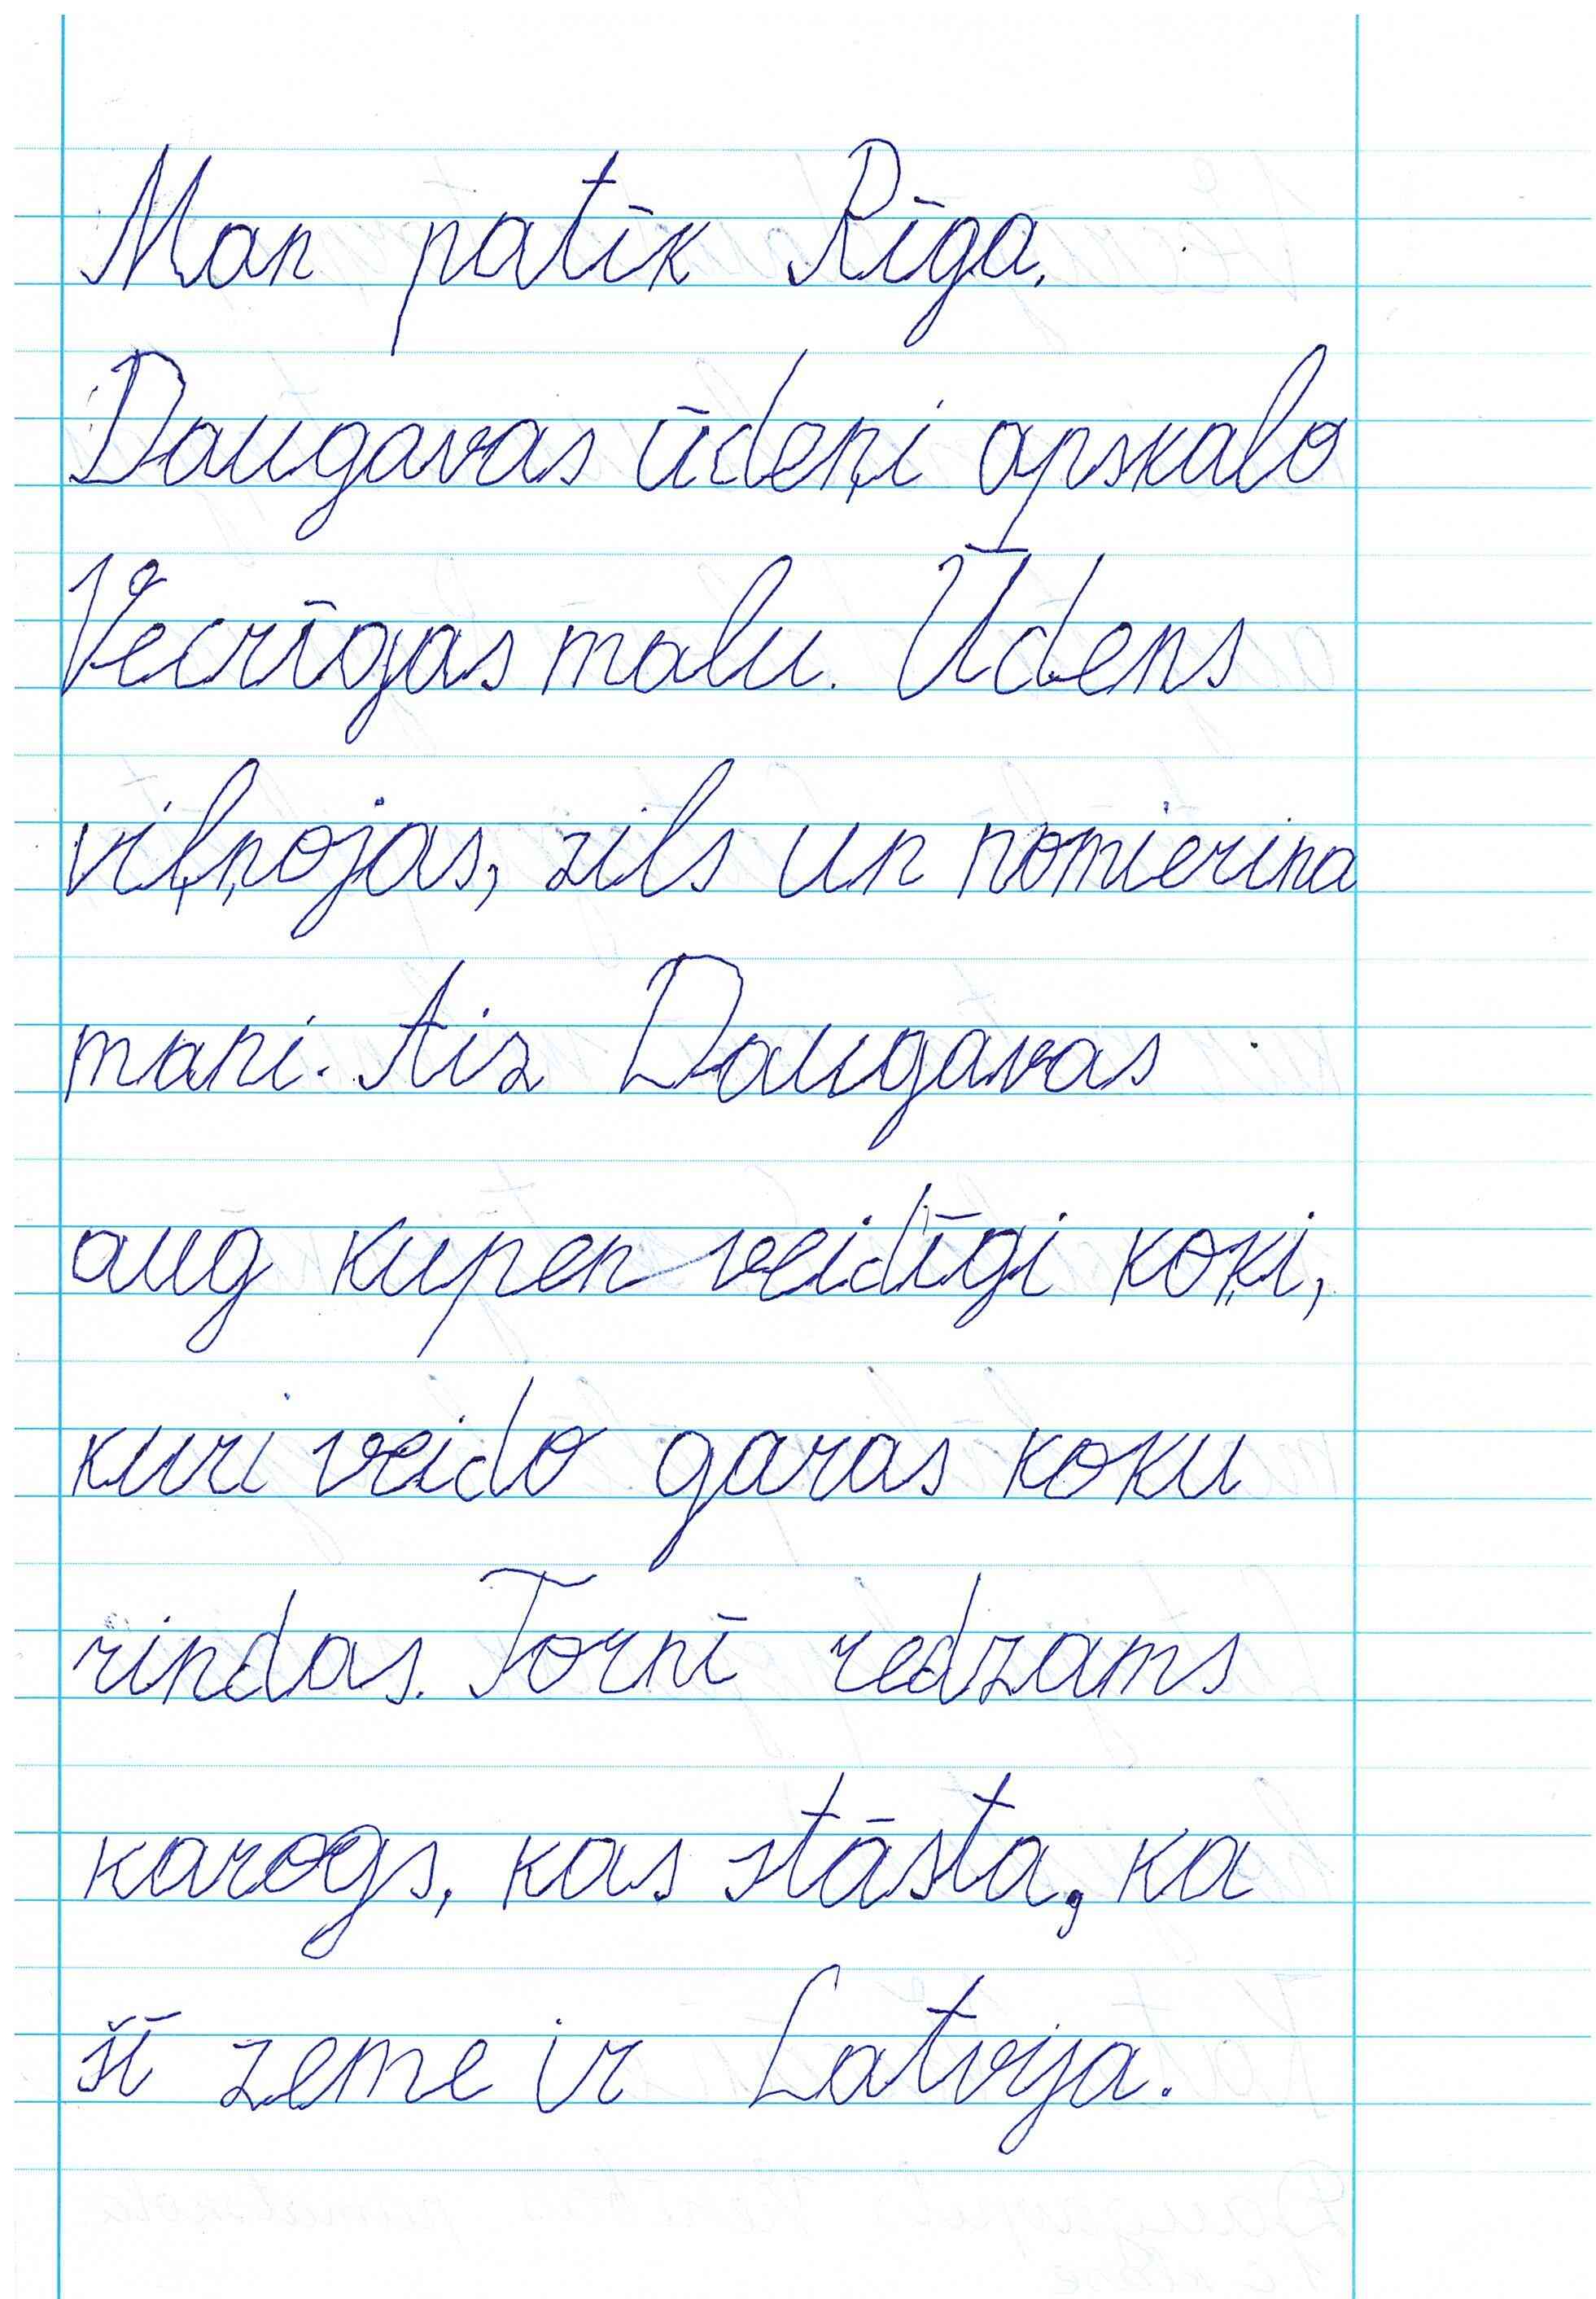 Man patīk Rīga.
Daugavas ūdeņi apskalo
Vecrīgas malu. Ūdens
viļņojas, zils un nomierina
mani. Aiz Daugavas
aug kupen veidīgi koķi,
kuri veido garas koku
rindas. Tornī redzams
karogs, kas stāsta, ka
šī zeme ir Latvija.